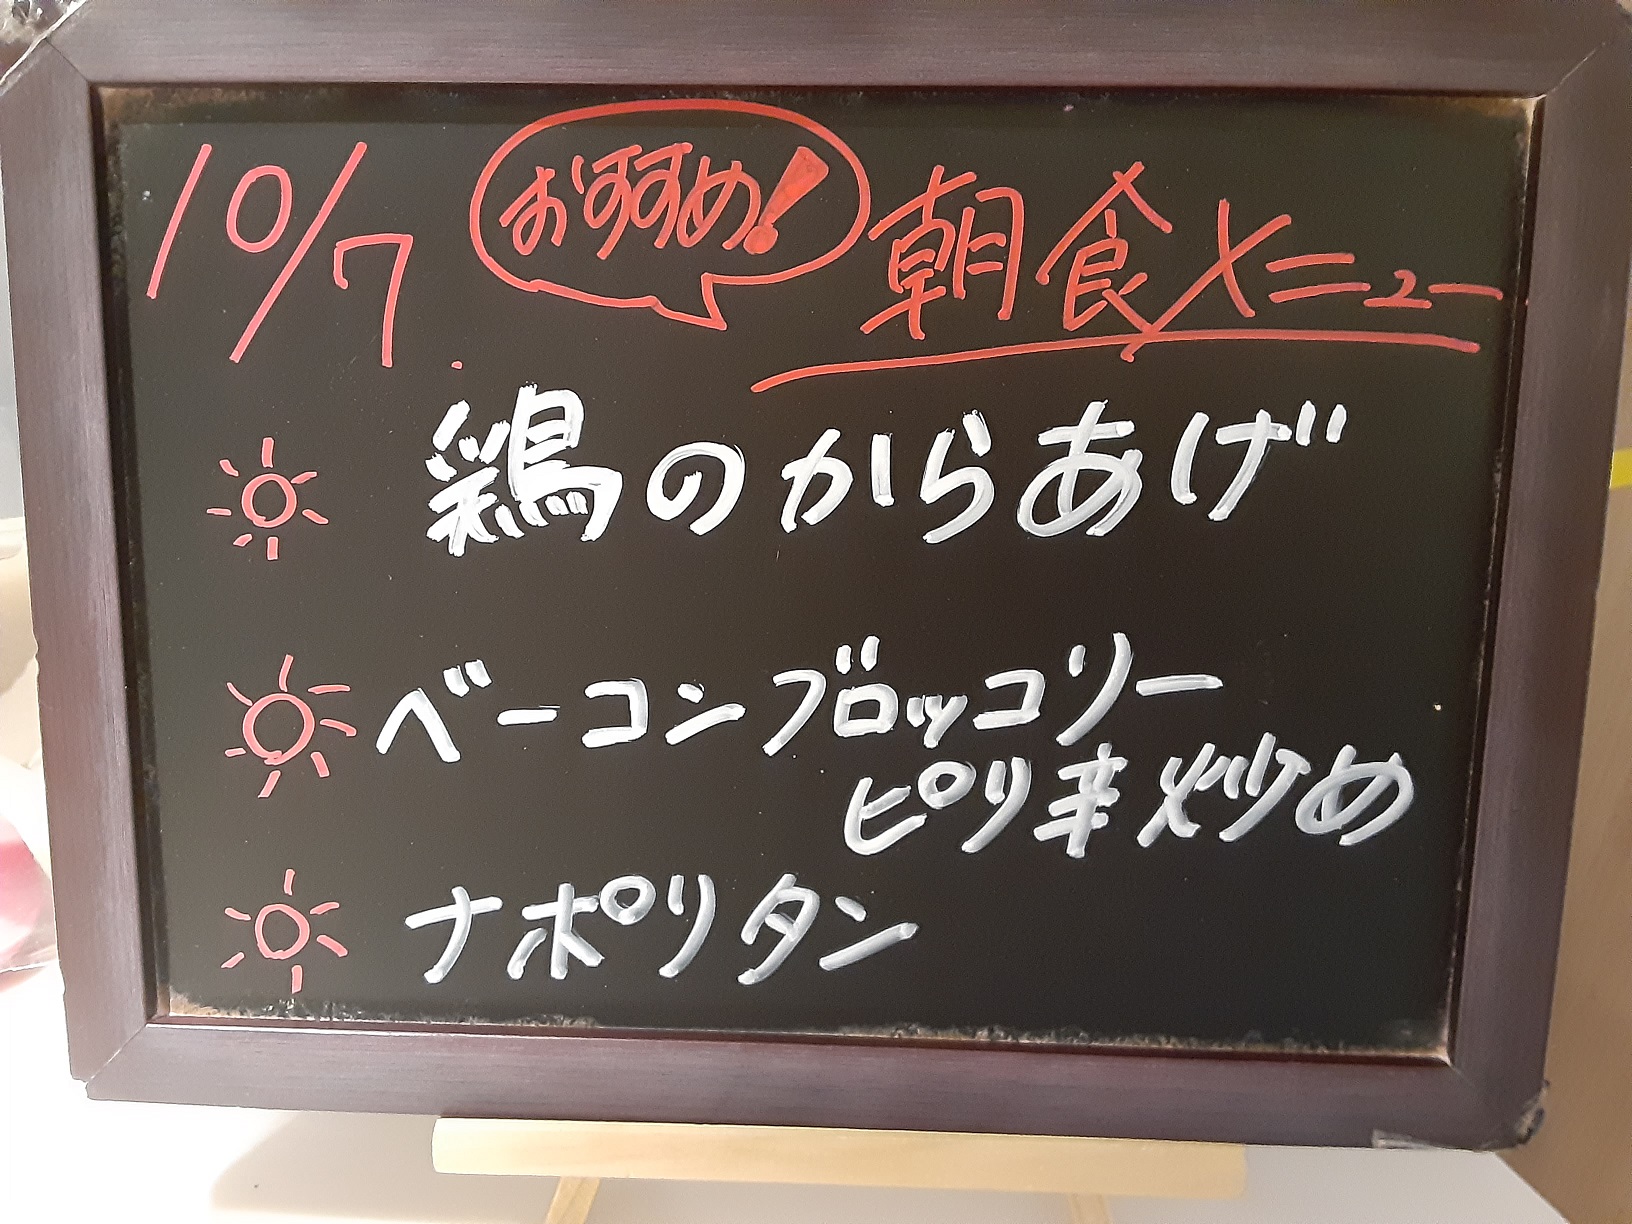 10/7. おすすめ! 朝食メニュー
鶏のからあげ
ベーコンブロッコリー
ピリ辛炒め
ナポリタン